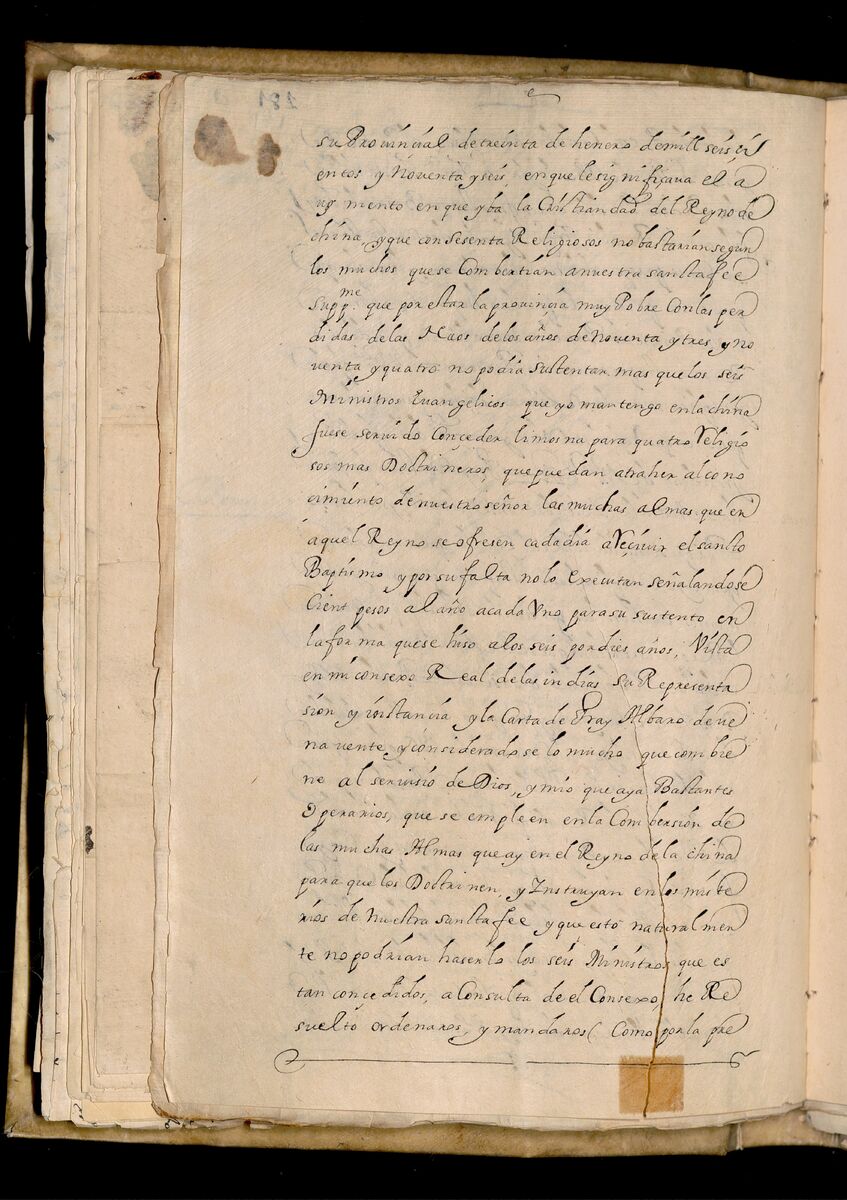 su Provincial de treinta de henero de mill seis ci
entos y Noventa y seis, en que le significava el a
ug mento en que yba la Cristiandad del Reyno de
china, y que con sesenta Religiosos no bastarian segun
los muchos que se Combertian a nuestra sancta fee
supp.me que por estar la provincia muy Pobre Con las per
didas de las Naos de los años de Noventa y tres, y no
venta y quatro no podia sustentar mas que los seis
Ministros Evangelicos que yo mantengo en la china
fuese servido Conçeder limosna para quatro Religio
sos mas Doctrineros, que puedan atraher al cono
cimiento de nuestro señor las muchas almas que en
aquel Reyno se ofresen cada dia a Reçivir el sancto
Baptismo y por su falta no lo Executan señalandose
Cient pesos al año a cada Uno para su sustento en
la forma que se hiso a los seis por dies años, Vista
en mi consexo Real de las indias su Representa
sion y instancia y la Carta de Fray Albaro de ve
na vente, y considerado se lo mucho que combie
ne al servisio de Dios, y mio que aya Bastantes
Operarios, que se empleen en la Combersion de
las muchas Almas que ay en el Reyno de la china
para que los Doctrinen, y Instruyan en los miste
rios de Nuestra sancta fee y que esto naturalmen
te no podrian haserlo los seis Ministros que es
tan concedidos, a Consulta de el Consexo, he Re
suelto ordenaros, y mandaros (Como por la pre